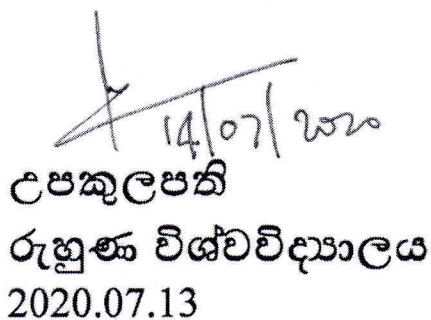 14/07/2020
උපකුලපති
රුහුණ විශ්වවිද්‍යාලය
2020.07.13